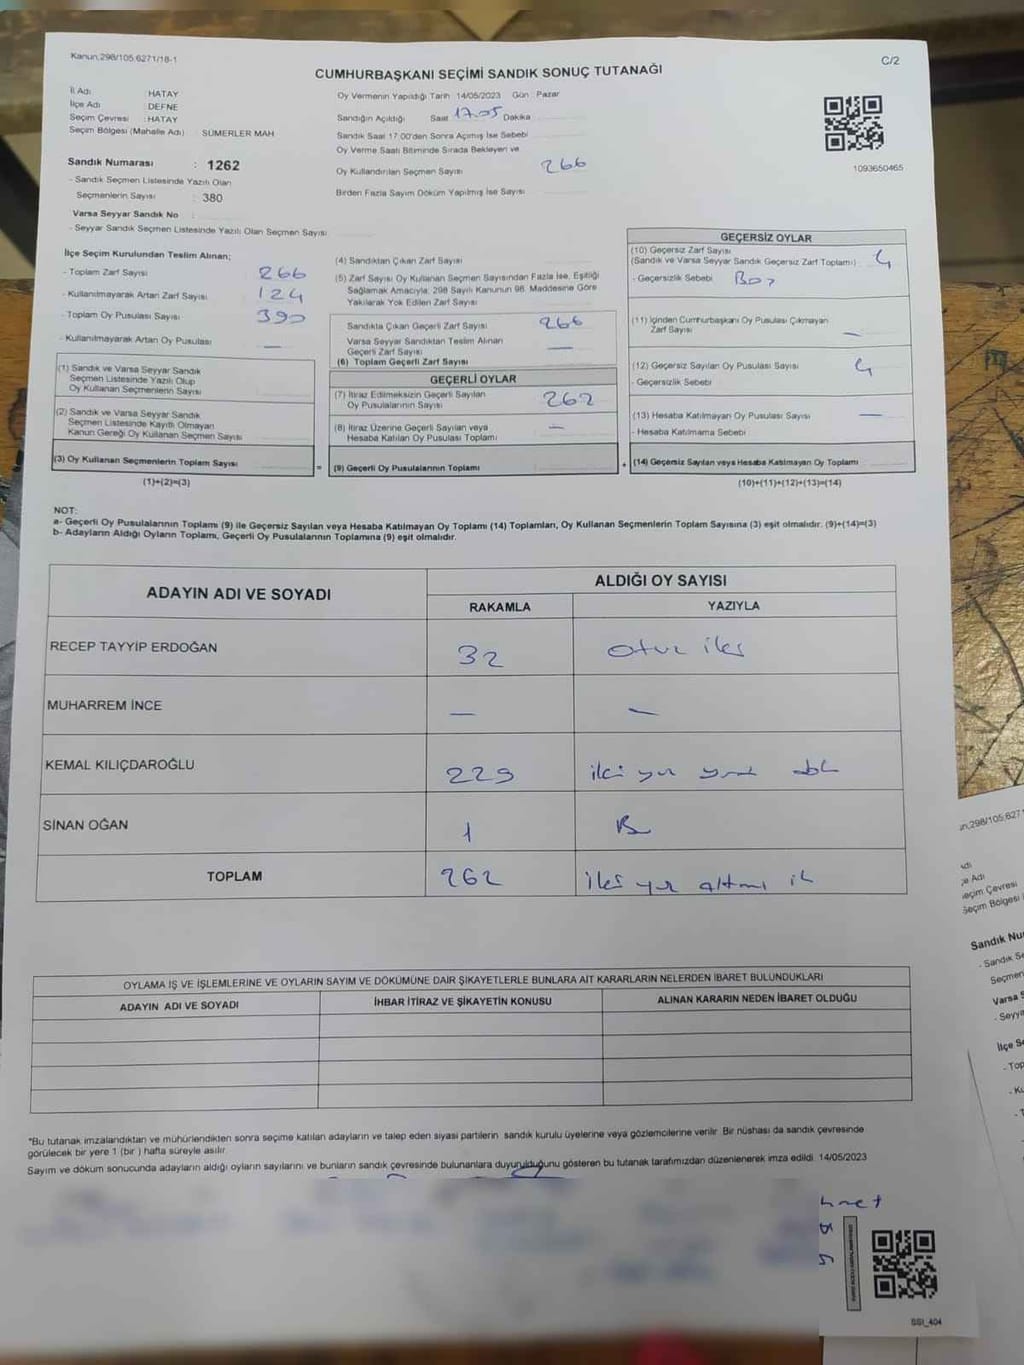 Kanun,298/105,6271/18-1
C/2
CUMHURBAŞKANI SEÇİMİ SANDIK SONUÇ TUTANAĞI
İl Adı : HATAY
İlçe Adı : DEFNE
Seçim Çevresi : HATAY
Seçim Bölgesi (Mahalle Adı) SÜMERLER MAH
Sandık Numarası : 1262
- Sandık Seçmen Listesinde Yazılı Olan
Seçmenlerin Sayısı : 380
Varsa Seyyar Sandık No :
- Seyyar Sandık Seçmen Listesinde Yazılı Olan Seçmen Sayısı
Oy Vermenin Yapıldığı Tarih 14/05/2023 Gün : Pazar
Sandığın Açıldığı Saat 17.05 Dakika
Sandık Saat 17:00'den Sonra Açılmış İse Sebebi
Oy Verme Saati Bitiminde Sırada Bekleyen ve
Oy Kullandırılan Seçmen Sayısı 266
Birden Fazla Sayım Döküm Yapılmış İse Sayısı
1093650465
İlçe Seçim Kurulundan Teslim Alınan;
- Toplam Zarf Sayısı 266
- Kullanılmayarak Artan Zarf Sayısı 124
- Toplam Oy Pusulası Sayısı 390
- Kullanılmayarak Artan Oy Pusulası —
(1) Sandık ve Varsa Seyyar Sandık
Seçmen Listesinde Yazılı Olup
Oy Kullanan Seçmenlerin Sayısı
(2) Sandık ve Varsa Seyyar Sandık
Seçmen Listesinde Kayıtlı Olmayan
Kanun Gereği Oy Kullanan Seçmen Sayısı
(3) Oy Kullanan Seçmenlerin Toplam Sayısı
=
(1)+(2)=(3)
(4) Sandıktan Çıkan Zarf Sayısı
(5) Zarf Sayısı Oy Kullanan Seçmen Sayısından Fazla İse, Eşitliği
Sağlamak Amacıyla; 298 Sayılı Kanunun 98. Maddesine Göre
Yakılarak Yok Edilen Zarf Sayısı
Sandıkta Çıkan Geçerli Zarf Sayısı 266
Varsa Seyyar Sandıktan Teslim Alınan
Geçerli Zarf Sayısı —
(6) Toplam Geçerli Zarf Sayısı
GEÇERLİ OYLAR
(7) İtiraz Edilmeksizin Geçerli Sayılan
Oy Pusulalarının Sayısı 262
(8) İtiraz Üzerine Geçerli Sayılan veya
Hesaba Katılan Oy Pusulası Toplamı —
(9) Geçerli Oy Pusulalarının Toplamı
+
GEÇERSİZ OYLAR
(10) Geçersiz Zarf Sayısı
(Sandık ve Varsa Seyyar Sandık Geçersiz Zarf Toplamı) 4
- Geçersizlik Sebebi Boş
(11) İçinden Cumhurbaşkanı Oy Pusulası Çıkmayan
Zarf Sayısı —
(12) Geçersiz Sayılan Oy Pusulası Sayısı 4
- Geçersizlik Sebebi
(13) Hesaba Katılmayan Oy Pusulası Sayısı —
- Hesaba Katılmama Sebebi
(14) Geçersiz Sayılan veya Hesaba Katılmayan Oy Toplamı
(10)+(11)+(12)+(13)=(14)
NOT:
a- Geçerli Oy Pusulalarının Toplamı (9) ile Geçersiz Sayılan veya Hesaba Katılmayan Oy Toplamı (14) Toplamları, Oy Kullanan Seçmenlerin Toplam Sayısına (3) eşit olmalıdır. (9)+(14)=(3)
b- Adayların Aldığı Oyların Toplamı, Geçerli Oy Pusulalarının Toplamına (9) eşit olmalıdır.
ADAYIN ADI VE SOYADI
ALDIĞI OY SAYISI
RAKAMLA YAZIYLA
RECEP TAYYİP ERDOĞAN 32 otuz iki
MUHARREM İNCE — —
KEMAL KILIÇDAROĞLU 229 iki yüz yirmi dok
SİNAN OĞAN 1 Bir
TOPLAM 262 iki yüz altmış iki
OYLAMA İŞ VE İŞLEMLERİNE VE OYLARIN SAYIM VE DÖKÜMÜNE DAİR ŞİKAYETLERLE BUNLARA AİT KARARLARIN NELERDEN İBARET BULUNDUKLARI
ADAYIN ADI VE SOYADI İHBAR İTİRAZ VE ŞİKAYETİN KONUSU ALINAN KARARIN NEDEN İBARET OLDUĞU
*Bu tutanak imzalandıktan ve mühürlendikten sonra seçime katılan adayların ve talep eden siyasi partilerin sandık kurulu üyelerine veya gözlemcilerine verilir. Bir nüshası da sandık çevresinde
görülecek bir yere 1 (bir ) hafta süreyle asılır.
Sayım ve döküm sonucunda adayların aldığı oyların sayılarını ve bunların sandık çevresinde bulunanlara duyurulduğunu gösteren bu tutanak tarafımızdan düzenlenerek imza edildi. 14/05/2023
SSI_404